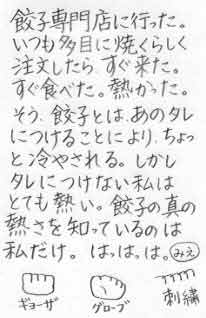 餃子専門店に行った。
いつも多目に焼くらしく
注文したら、すぐ来た。
すぐ食べた。熱かった。
そう、餃子とは、あのタレ
につけることにより、ちょっ
と冷やされる。しかし
タレにつけない私は
とても熱い。餃子の真の
熱さを知っているのは
私だけ。はっはっは。みえ
ギョーザ グローブ 刺繍